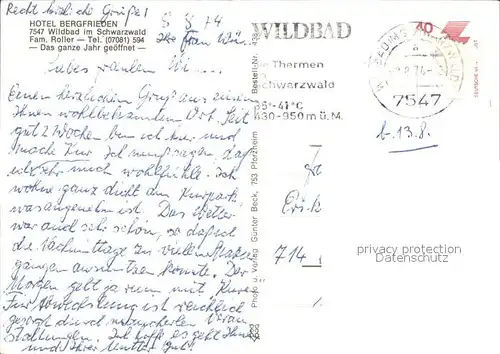 Recht herzliche Grüße!
8 8 74
Ihre Frau
HOTEL BERGFRIEDEN
7547 Wildbad im Schwarzwald
Fam. Roller – Tel. (07081) 594
– Das ganze Jahr geöffnet –
Liebes Fräulein
Einen herzlichen Gruß aus einem
Ihnen wohlbekannten Ort. Seit
gut 2 Wochen bin ich hier und
mache Kur. Ich muß sagen, daß
ich mich sehr wohlfühle. Ich
wohne ganz dicht am Kurpark,
was angenehm ist. Das Wetter
war auch sehr schön, so daß ich
die Nachmittage zu vielen Spazier-
gängen ausnutzen konnte. Der
Morgen geht ja hin mit Kuren
Für Abwechslung ist reichlich
gesorgt durch Veran-
staltungen. Ich hoffe es geht Ihnen
und Ihrer Mutter gut!
Photo u. Verlag Günter Beck, 753 Pforzheim
Bestell-Nr.
WILDBAD
Thermen
Schwarzwald
35°-41°C
430-950 m ü. M.
40
7547
b. 13.8.
714
proprietary protection
Datenschutz